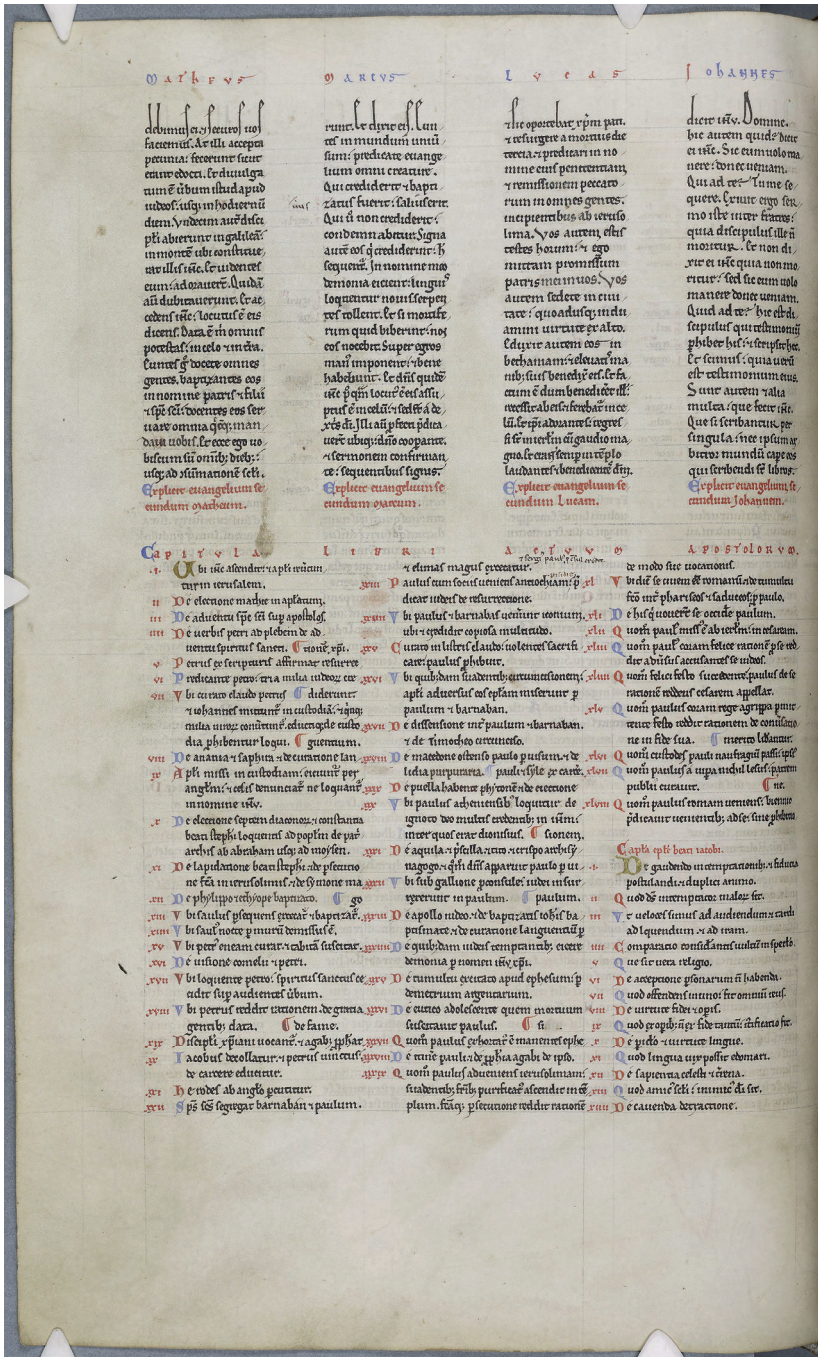 Matheus
debimus ei. & securos uos
faciemus. At illi accepta
pecunia: fecerunt sicut
erant edocti. Et diuulga
tum ē ūbum istud apud
iudeos: usq; in hodiernū
diem. Vndecim aut̄ disci
pl̄i abierunt in galileā:
in montē ubi constitue
rat illis ih̄c. Et uidentes
eum: adorauer̄t. Quidā
aū dubitauerunt. Et ac
cedens ih̄c: locutus ē eis
dicens. Data ē m̄ omnis
potestas: in celo & in t̄ra.
Euntes ḡ docete omnes
gentes. baptizantes eos
in nomine patris & filii
& sp̄c sc̄i: docentes eos ser
uare omnia q̄cūq; man
daui uobis. Et ecce ego uo
biscum sū omīb; dieb;:
usq; ad ɔsūmationē sc̄li.
Explicit euangelium se
cundum Matheum.
Marcus
runt. Et dixit eis. Eun
tes in mundum uniū
sum: predicate euange
lium omni creature.
Qui crediderit & bapti
zatus fuerit: saluus erit.
Qui ū non crediderit:
condemnabitur. Signa
autē eos q̄ crediderint: h̄
sequent̄. In nomine meo
demonia eicient: linguis
loquentur nouis. serpen
tes tollent. Et si mortife
rum quid biberint: nō
eos nocebit. Super egros
man᷒ imponent: & bene
habebunt. Et dn̄s quidē
ih̄c pq̄m locut᷒ ē eis assū
ptus ē in celū: & sedet a de
xt̄s dī. Illi aū pfecti p̄dica
uer̄t ubiq;: dn̄o coopante.
& sermonem confirman
te: sequentibus signis.
Explicit euangelium se
cundum Marcum.
Lucas
& sic oportebat xp̄m pati.
& resurgere a mortuis die
tercia: & predicari in no
mine eius penitentiam
& remissionem peccato
rum in omnes gentes.
incipientibus ab ieruso
lima. Vos autem estis
testes horum: & ego
mittam promissum
patris mei in uos. Vos
autem sedete in ciui
tate: quoadusq; indu
amini uirtute ex alto.
Eduxit autem eos in
bethaniam: & eleuatis ma
nib; suis benedix̄ eis. Et fa
ctum ē dum benediceret ill̄:
recessit ab eis: & ferebat̄ in ce
lū. Et ip̄i adorantes: regres
si s̄t in ier̄lm cū gaudio ma
gno. Et erant semp in tēplo
laudantes & benedicentes dm̄.
Explicit euangelium se
cundum Lucam.
Iohannes
dicit ih̄u. Domine.
hic autem quid? Dicit
ei ih̄c. Sic eum uolo ma
nere: donec ueniam.
Qui ad te? Tu me se
quere. Exiuit ergo ser
mo iste inter fratres:
quia discipulus ille n̄
moritur. Et non di
xit ei ih̄c quia non mo
ritur: sed sic eum uolo
manere donec ueniam.
Quid ad te? hic est di
scipulus qui testimoniū
phibet his: & scripsit hec.
Et scimus: quia uerū
est testimonium eius.
Sunt autem & alia
multa: que fecit ih̄c.
Que si scribantur per
singula: nec ipsum ar
bitror mundū cape eos
qui scribendi s̄t libros.
Explicit euangelium se
cundum Iohannem.
Capitula Libri Actuum Apostolorum.
.i. Vbi ih̄c ascendit: & apl̄i reūtun
tur in ierusalem.
ii De electione mathie in apl̄atum.
iii De aduentu sp̄c sc̄i sup apostolos.
iiii De uerbis petri ad plebem de ad
uentu spiritus sancti. ¶ tionē xp̄i.
v Petrus ex scripturis affirmat resurrec
vi Predicante petro: tria milia iudeor̄ cre
vii Vbi curato claudo petrus ¶ diderunt
& iohannes mittunt̄ in custodiā: & qinq;
milia uiror̄ conūtunt̄. eductiq; de custo
dia phibentur loqui. ¶ guentium.
viii De anania & saphira & de curatione lan
ix Apl̄i missi in custodiam: eiciunt̄ per
angl̄m: & cesis denunciat̄ ne loquant̄
in nomine ih̄u.
x De electione septem diaconor̄: & constantia
beati steph̄i loquentis ad popl̄m de pat̄
archis ab abraham usq; ad moysen.
xi De lapidatione beati steph̄i & de psecutio
ne fc̄a in ierusolimis: & de symone ma
xii De phylippo & ethyope baptizato. ¶ go
xiii Vbi saulus psequens excecat̄ & baptizat̄.
xiiii Vbi saul᷒ nocte p murū demissus ē.
xv Vbi petr᷒ eneam curat. & tabitā suscitat.
xvi De uisione cornelii & petri.
xvii Vbi loquente petro: spiritus sanctus ce
cidit sup audientes ūbum.
xviii Vbi petrus reddit rationem de gratia
gentib; data. ¶ de fame.
xix Discipl̄i xp̄iani uocant̄. & agab᷒ pphat
xx Iacobus decollatur: & petrus uinctus
de carcere educitur.
xxi Herodes ab anglō pcutitur.
xxii Sp̄s sc̄s segregat barnaban & paulum.
& sergi᷒ paul᷒ pcōsul credit.
& elimas magus excecatur.
xxiii Paulus cum sociis ueniens antiochiam: p̄
dicat iudeis de resurrectione.
xxiiii Vbi paulus & barnabas uenunt iconium.
ubi & credidit copiosa multitudo.
xxv Curato in listris claudo: uolentes sacrifi
care: paulus phibuit.
xxvi Vbi quib;dam suadentib; circuncisionem:
apl̄i aduersus eos epl̄am miserunt p
paulum & barnaban.
xxvii De dissensione int̄ paulum & barnaban.
& de Timotheo circunciso.
xxviii De macedone ostenso paulo p uisum. & de
lidia purpuraria. ¶ paul᷒ & syle ex carc̄.
xxix De puella habente phitonē & de eiectione
xxx Vbi paulus atheniensib᷒ loquitur de
ignoto deo multis credentib; in ih̄m:
inter quos erat dionisius. ¶ sionem.
xxxi De aquila & p̄scilla. & tito & crispo archisy
nagogo: & qm̄ dn̄s apparuit paulo p ui
xxxii Vbi sub gallione pconsule: iudei insur
rexerunt in paulum. ¶ paulum.
xxxiii De apollo iudeo & de baptizatis ioh̄is ba
ptismate & de curatione languentiū p
xxxiiii De quib;dam iudeis temptantib; eicere
demonia p nomen ih̄u xp̄i.
xxxv De tumultu excitato apud ephesum: p
demetrium argentarium.
xxxvi De eutico adolescente quem mortuum
suscitauit paulus. ¶ si
xxxvii Quom̄ paulus exhortat᷒ ē manentes ephe
xxxviii De itinē pauli: & de pphia agabi de ipso.
xxxix Quom̄ paulus adueniens ierusolimam:
suadentib; frīb; purificat̄ ascendit in tē
plum. fc̄aq; psecutione reddit rationē
de modo sue uocationis.
xl Vbi dic̄ se ciuem eē romanū: & de tumultu
fc̄o int̄ phariseos & saduceos: p paulo.
xli De his q̄ uouer̄t se occide paulum.
xlii Quom̄ paul᷒ miss᷒ ē ab ier̄lm: in cesaream.
xliii Quom̄ paul᷒ coram felice rationē p se red
dit aduersus accusantes se iudeos.
xliiii Quom̄ felici festo succedente: paulus de se
rationē reddens cesarem appellat.
xlv Quom̄ paulus coram rege agrippa pmit
tente festo reddit rationem de conūsatio
ne in fide sua. ¶ merito libantur.
xlvi Quom̄ custodes pauli naufragiū passi: ipsi᷒
xlvii Quom̄ paulus a uipa nichil lesus: patrem
publii curauit. ¶ ne.
xlviii Quom̄ paulus romam ueniens: biennio
p̄dicauit uenientib; ad se: sine phibitio
Capl̄a epl̄e beati iacobi.
.i. De gaudendo in temptationib; & fiducia
postulandi: & duplici animo.
ii Quod ds̄ intemptator malor̄ sit.
iii Vt ueloces simus ad audiendum: & tardi
ad lquendum & ad iram.
iiii Comparatio consid̄antis uultū in speclō.
v Que sit uera religio.
vi De acceptione psonarum n̄ habenda.
vii Quod offendens in uno: fit omniū reus.
viii De uirtute fidei & opis.
ix Quod ex opib; n̄ ex fide tantū: iustificatio fit.
x De piclo & uirtute lingue.
xi Quod lingua uix possit edomari.
xii De sapientia celesti & t̄rena.
xiii Quod amic᷒ sc̄li: inimic᷒ dī sit.
xiiii De cauenda detractione.